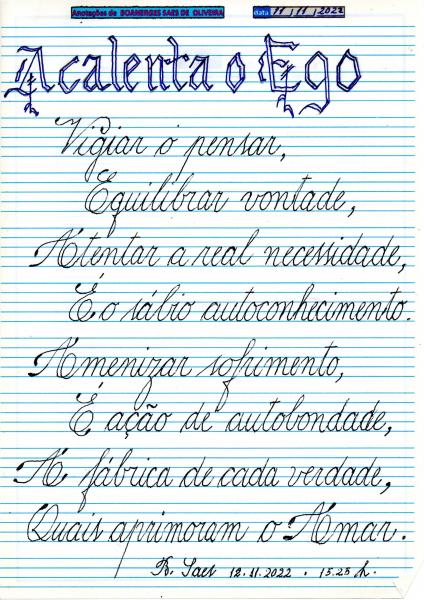 Anotações de BOANERGES SAES DE OLIVEIRA data 11 / 11 / 2022
Acalenta o Ego
Vigiar o pensar,
Equilibrar vontade,
Atentar a real necessidade,
É o sábio autoconhecimento.
Amenizar sofrimento,
É ação de autobondade,
A fábrica de cada verdade,
Quais aprimoram o Amar.
B. Saes 12.11.2022 . 15.25 h.